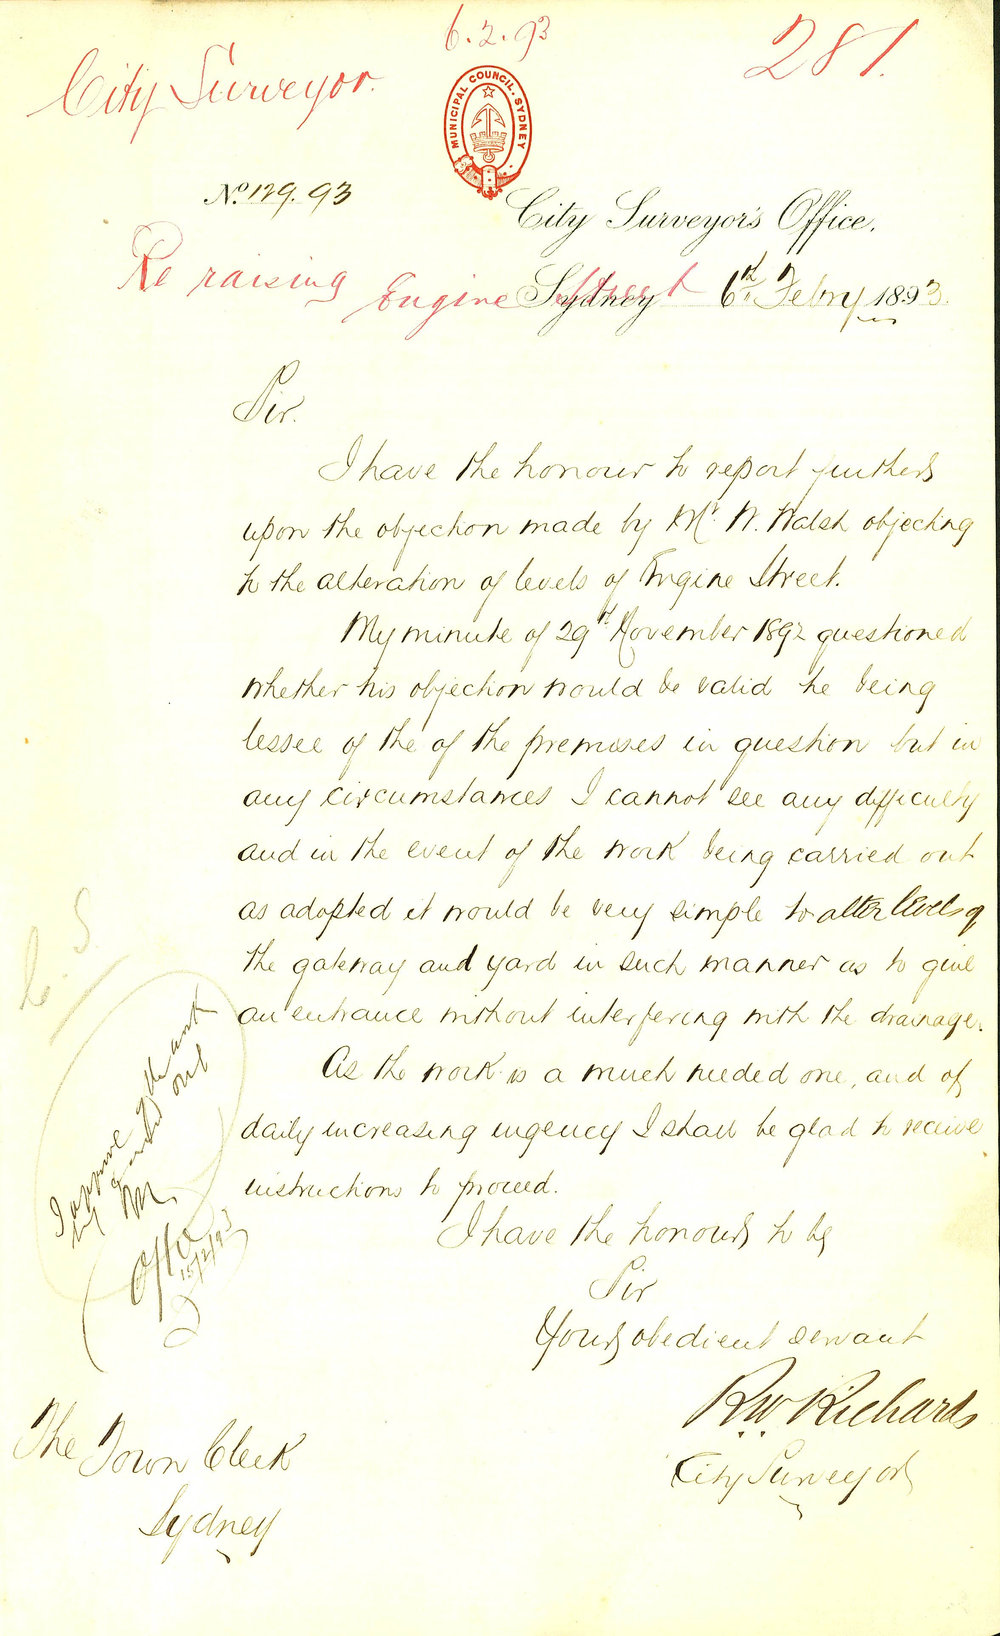 6.2.93
281.
City Surveyor.
MUNICIPAL COUNCIL. SYDNEY
No. 129.93
City Surveyor's Office,
Re raising Engine Street
Sydney 6th Febry 1893.
Sir.
I have the honour to report further
upon the objection made by Mr. W. Walsh objecting
to the alteration of levels of Engine Street.
My minute of 29th November 1892 questioned
whether his objection would be valid he being
lessee of the of the premises in question but in
any circumstances I cannot see any difficulty
and in the event of the work being carried out
as adopted it would be very simple to alter levels of
the gateway and yard in such manner as to give
an entrance without interfering with the drainage.
As the work is a much needed one, and of
daily increasing urgency I shall be glad to receive
instructions to proceed.
I have the honour to be
Sir
Your obedient servant
R W Richards
City Surveyor
C. S.
I approve of the work
being carried out
15/2/93
The Town Clerk
Sydney